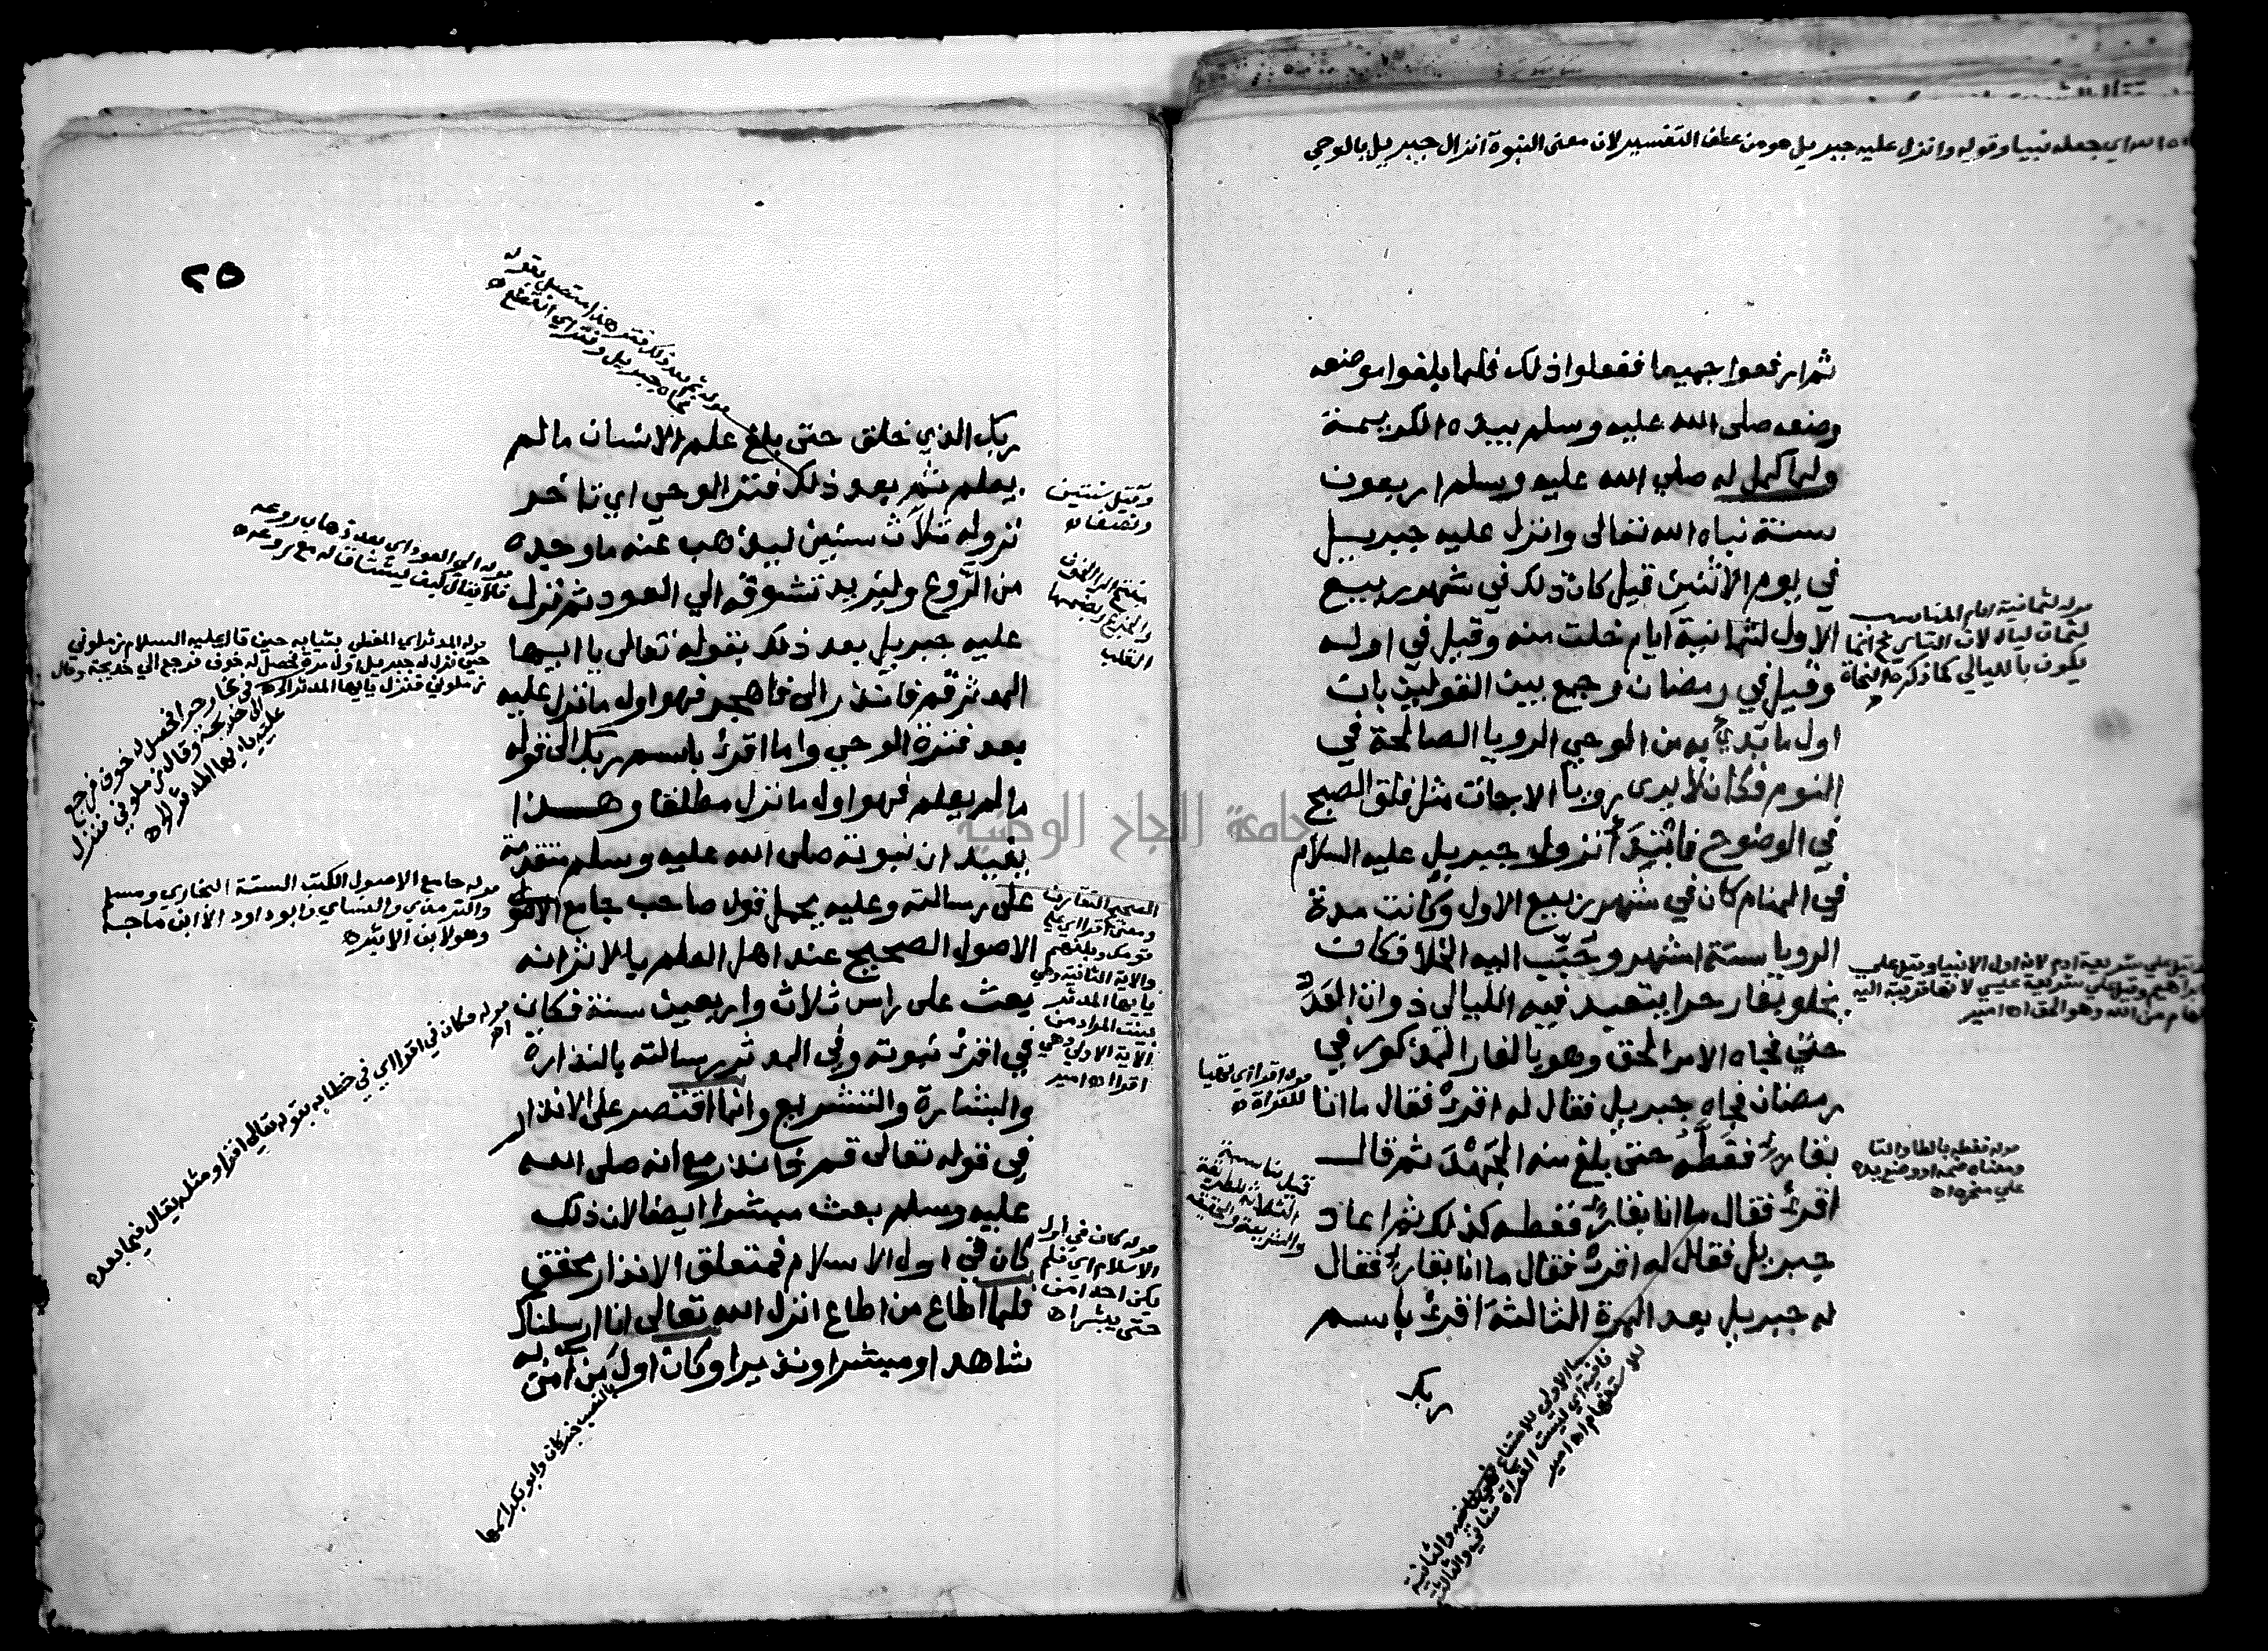 اي جعله نبيا وقوله وانزل عليه جبريل هو من عطف التفسير لان معنى النبوة انزال جبريل بالوحي
ثم ارفعوا جميعا ففعلوا ذلك فلما بلغوا موضعه
وضعه صلى الله عليه وسلم بيده الكريمة
ولما كمل له صلى الله عليه وسلم اربعون
سنة نباه الله تعالى وانزل عليه جبريل
في يوم الاثنين قيل كان ذلك في شهر ربيع
الاول لثمانية ايام خلت منه وقيل في اوله
وقيل في رمضان وجمع بين القولين بان
اول ما بدئ به من الوحي الرويا الصالحة في
النوم فكان لا يرى رويا الا جات مثل فلق الصبح
في الوضوح فابتدا نزول جبريل عليه السلام
في المنام كان في شهر ربيع الاول وكانت مدة
الرويا ستة اشهر وحبب اليه الخلا فكان
يخلو بغار حرا يتعبد فيه الليالي ذوات العدد
حتى فجاه الامر الحق وهو بالغار المذكور في
رمضان فجاه جبريل فقال له اقرئ فقال ما انا
بقارئ فغطه حتى بلغ منه الجهد ثم قال
اقرئ فقال ما انا بقارئ فغطه كذلك ثم اعاد
جبريل فقال له اقرئ فقال ما انا بقارئ فقال
له جبريل بعد المرة الثالثة اقرئ باسم
ربك
قوله لثمانية ايام المناسب
لثمان ليال لان التاريخ انما
يكون بالليالي كما ذكره النحاة
وقيل على شريعة ادم لانه اول الانبيا وقيل على
ابراهيم وقيل على شريعة عيسى لانها قريبة اليه
من الله وهو الحق اه امير
قوله اقرا اي تهيا
للقراة ه
قوله فغطه بالطا والتا
ومعناه ضمه او وضع يده
على منخره اه
قيل مناسبة
الثلاثة للطريقة
والشريعة والحقيقة
ما الاولى للامتناع والثانية
نافية اي ليست القراة والثالثة
للاستفهام اه امير
٢٥
قوله ثم بعد ذلك فتر هذا متصل بقوله
فجاه جبريل وفتر اي انقطع ه
ربك الذي خلق حتى بلغ علم الانسان ما لم
يعلم ثم بعد ذلك فتر الوحي اي تاخر
نزوله ثلاث سنين ليذهب عنه ما وجده
من الروع وليزيد تشوقه الي العود ثم نزل
عليه جبريل بعد ذلك بقوله تعالى يا ايها
المدثر قم فانذر الى فاهجر فهو اول ما نزل عليه
بعد فترة الوحي واما اقرئ باسم ربك الى قوله
ما لم يعلم فهو اول ما نزل مطلقا وهذا
يفيد ان نبوته صلى الله عليه وسلم متقدمة
على رسالته وعليه يحمل قول صاحب جامع الاصول
الاصول الصحيح عند اهل العلم بالاثر انه
بعث على راس ثلاث واربعين سنة فكان
في اقرئ نبوته وفي المدثر رسالته بالنذارة
والبشارة والتشريع وانما اقتصر على الانذار
في قوله تعالى قم فانذر مع انه صلى الله
عليه وسلم بعث مبشرا ايضا لان ذلك
كان في اول الاسلام فمتعلق الانذار محقق
فلما اطاع من اطاع انزل الله تعالى انا ارسلناك
شاهدا ومبشرا ونذيرا وكان اول من امن له
وقيل سنتين
ونصفا ه
بفتح الرا الخوف
والفزع وبضمها
القلب
قوله الى العود اي بعد ذهاب روعه
فلا يقال كيف يشتاق له مع روعه ه
قوله المدثر اي المغطى بثيابه حين قال عليه السلام زملوني
حين نزل له جبريل اول مرة فحصل له خوف فرجع الى خديجة وقال
زملوني فنزل يا ايها المدثر
في غار حرا فحصل له خوف فرجع
الى خديجة وقال زملوني فنزل
عليه يا ايها المدثر الخ ه
قوله جامع الاصول الكتب الستة البخاري ومسلم
والترمذي والنساي وابو داود الا ابن ماجه
وهو لابن الاثير ه
الصحيح التقارن
ومعنى اقرا اي على
قومك وبلغهم
والاية الثانية وهي
يا ايها المدثر
بينت المراد من
الاية الاولى وهي
اقرا اه امير
قوله فكان في اقرا اي في خطابه بقوله تعالى اقرا ومثله يقال فيما بعده
قوله كان في اول
الاسلام اي فلم
يكن احد امن
حتى يبشر اه
بالنصب خبر كان وابو بكر اسمها
جامعة النجاح الوطنية